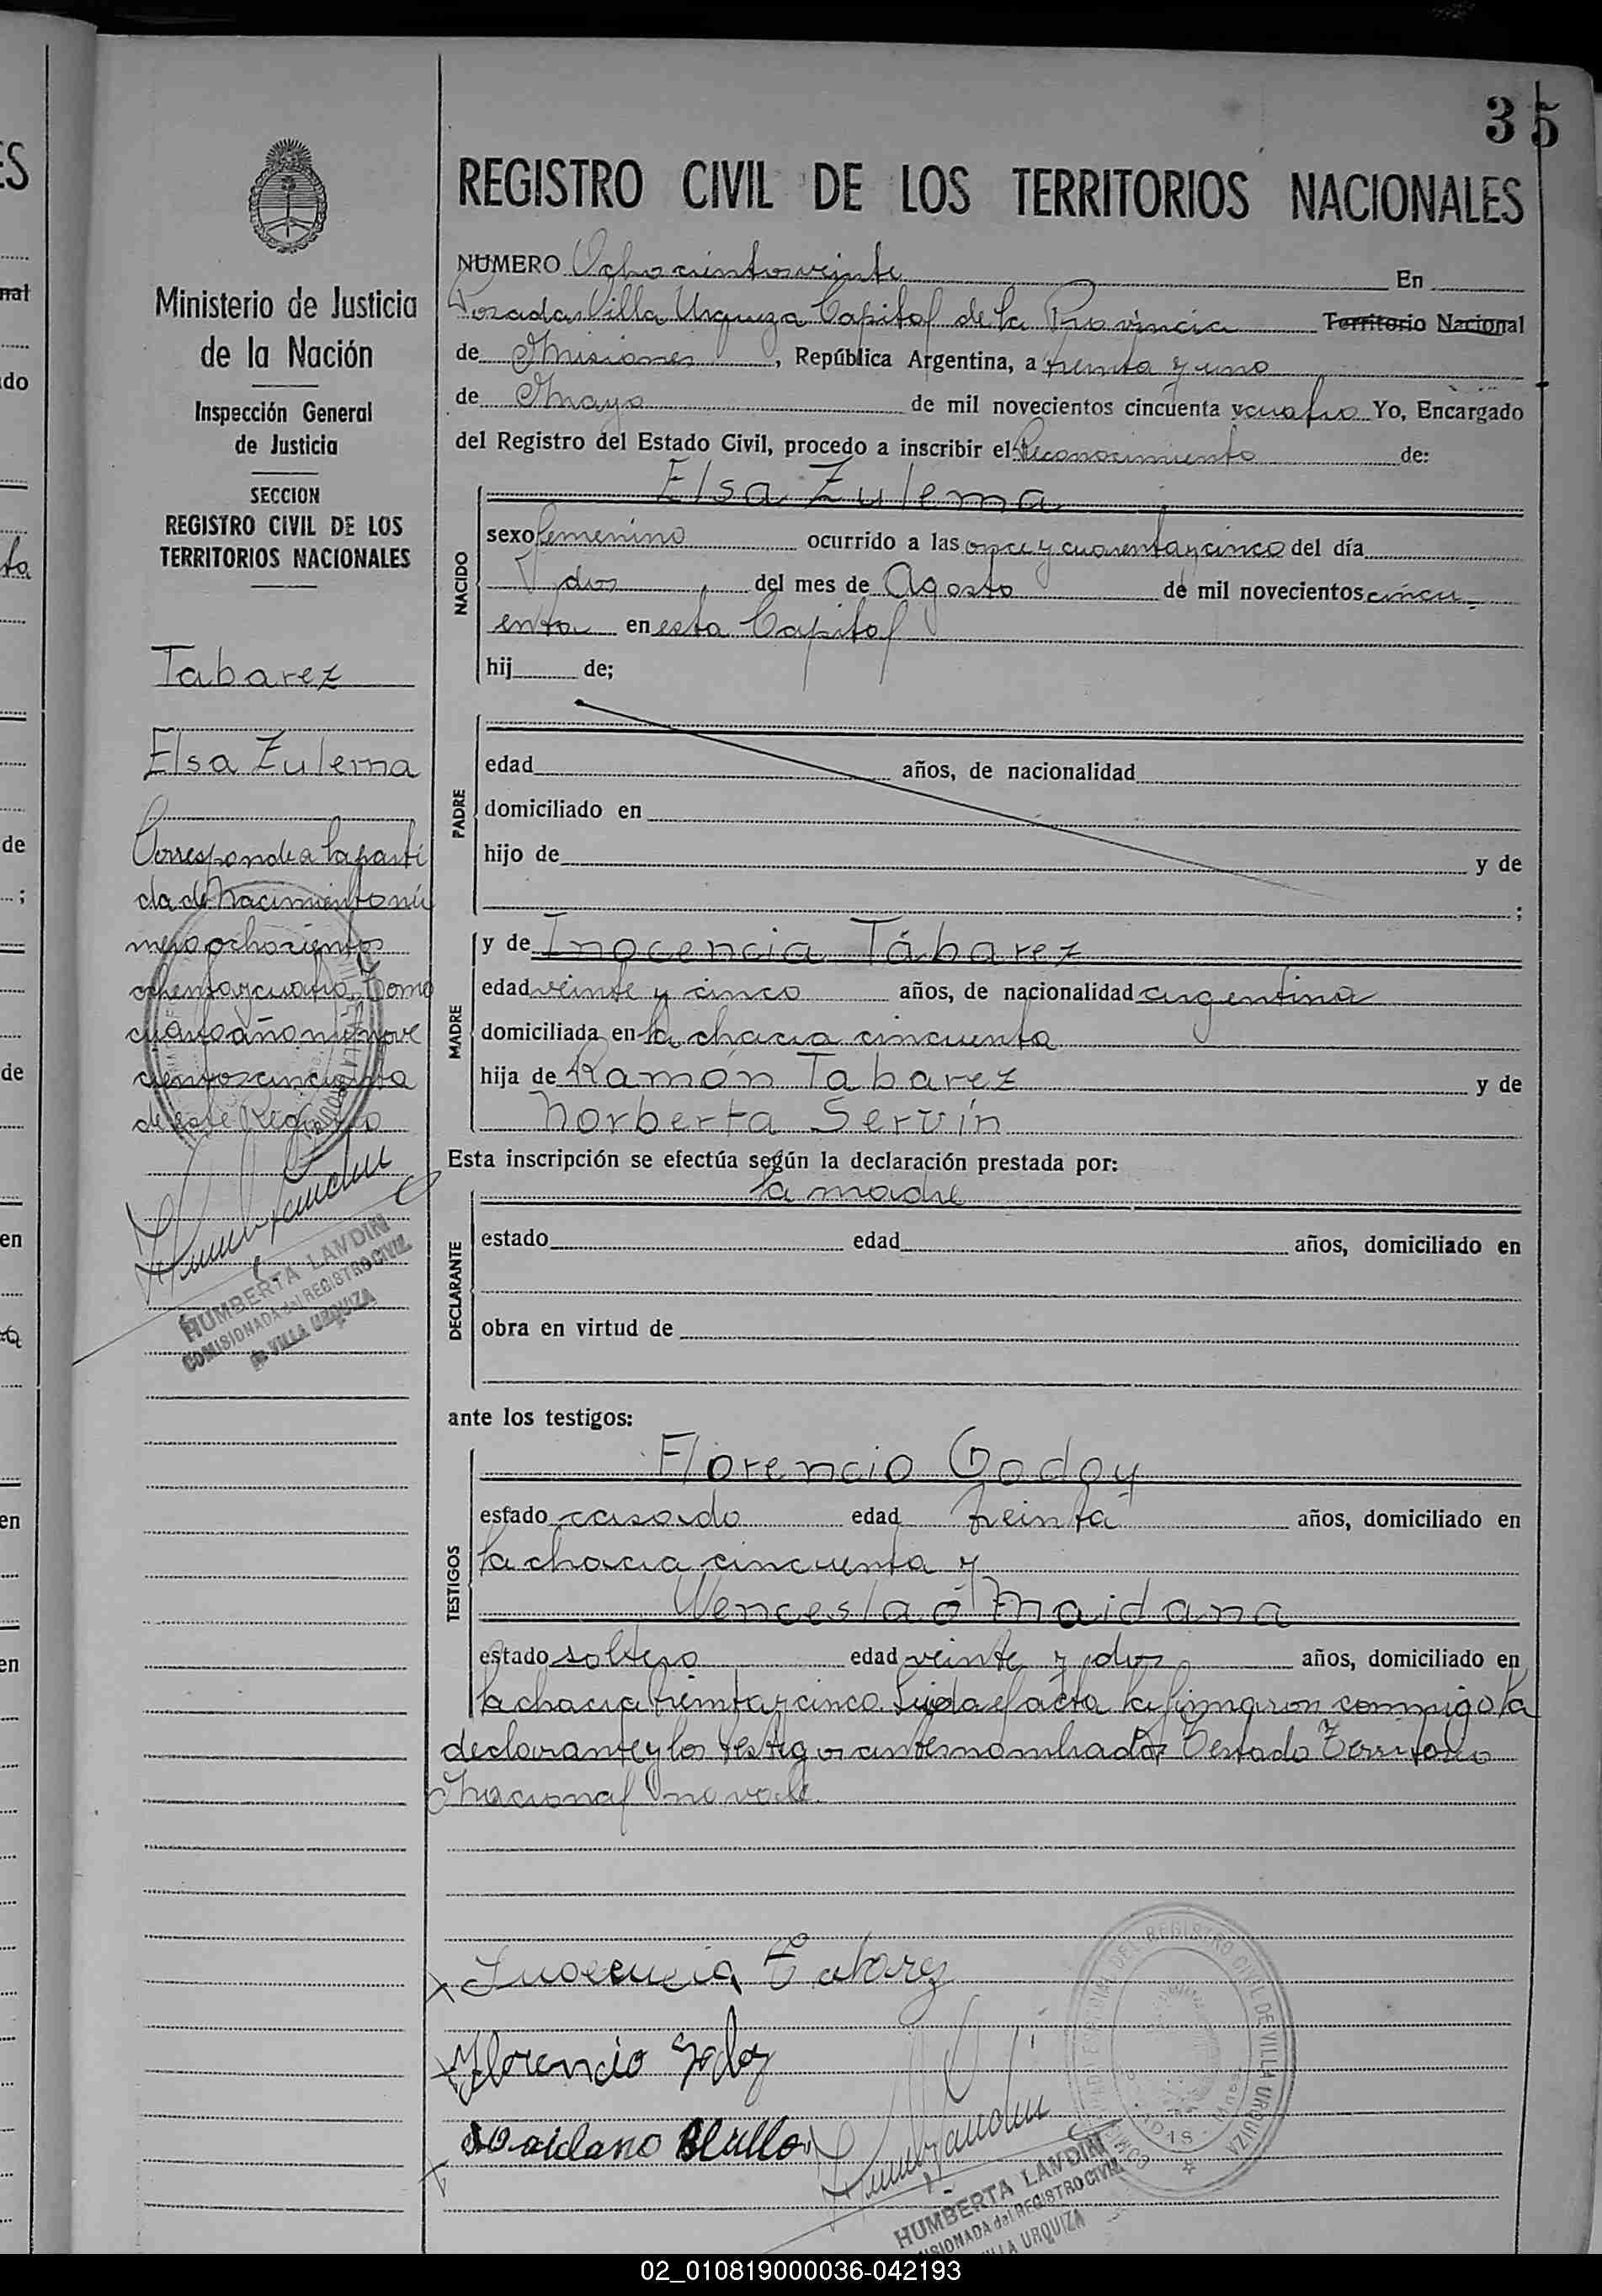 35
REGISTRO CIVIL DE LOS TERRITORIOS NACIONALES
Ministerio de Justicia
de la Nación
Inspección General
de Justicia
SECCION
REGISTRO CIVIL DE LOS
TERRITORIOS NACIONALES
Tabarez
Elsa Zulema
Corresponde a la parti
da de Nacimiento nú
mero ochocientos
ochenta y cuatro Tomo
cuarto año mil nove
cientos cincuenta
de este Registro
HUMBERTA LANDIN
COMISIONADA del REGISTRO CIVIL
de VILLA URQUIZA
NUMERO Ochocientos veinte En
Posadas Villa Urquiza Capital de la Provincia Territorio Nacional
de Misiones, República Argentina, a treinta y uno
de Mayo de mil novecientos cincuenta y cuatro Yo, Encargado
del Registro del Estado Civil, procedo a inscribir el Reconocimiento de:
NACIDO
Elsa Zulema
sexo femenino ocurrido a las once y cuarenta y cinco del día
dos del mes de Agosto de mil novecientos cincu
enta en esta Capital
hij de;
PADRE
edad años, de nacionalidad
domiciliado en
hijo de y de
;
MADRE
y de Inocencia Tábarez
edad veinte y cinco años, de nacionalidad argentina
domiciliada en la chacra cincuenta
hija de Ramón Tabarez y de
Norberta Servín
Esta inscripción se efectúa según la declaración prestada por:
DECLARANTE
la madre
estado edad años, domiciliado en
obra en virtud de
ante los testigos:
TESTIGOS
Florencio Godoy
estado casado edad treinta años, domiciliado en
la chacra cincuenta y
Wenceslao Maidana
estado soltero edad veinte y dos años, domiciliado en
la chacra treinta y cinco. Leida el acta la firmaron conmigo la
declarante y los testigos antes nombrados Testado Territorio
Nacional no vale.
Inocencia Tabarez
Florencio Godoy
HUMBERTA LANDIN
COMISIONADA del REGISTRO CIVIL
VILLA URQUIZA
DEL REGISTRO CIVIL DE VILLA URQUIZA
02_010819000036-042193